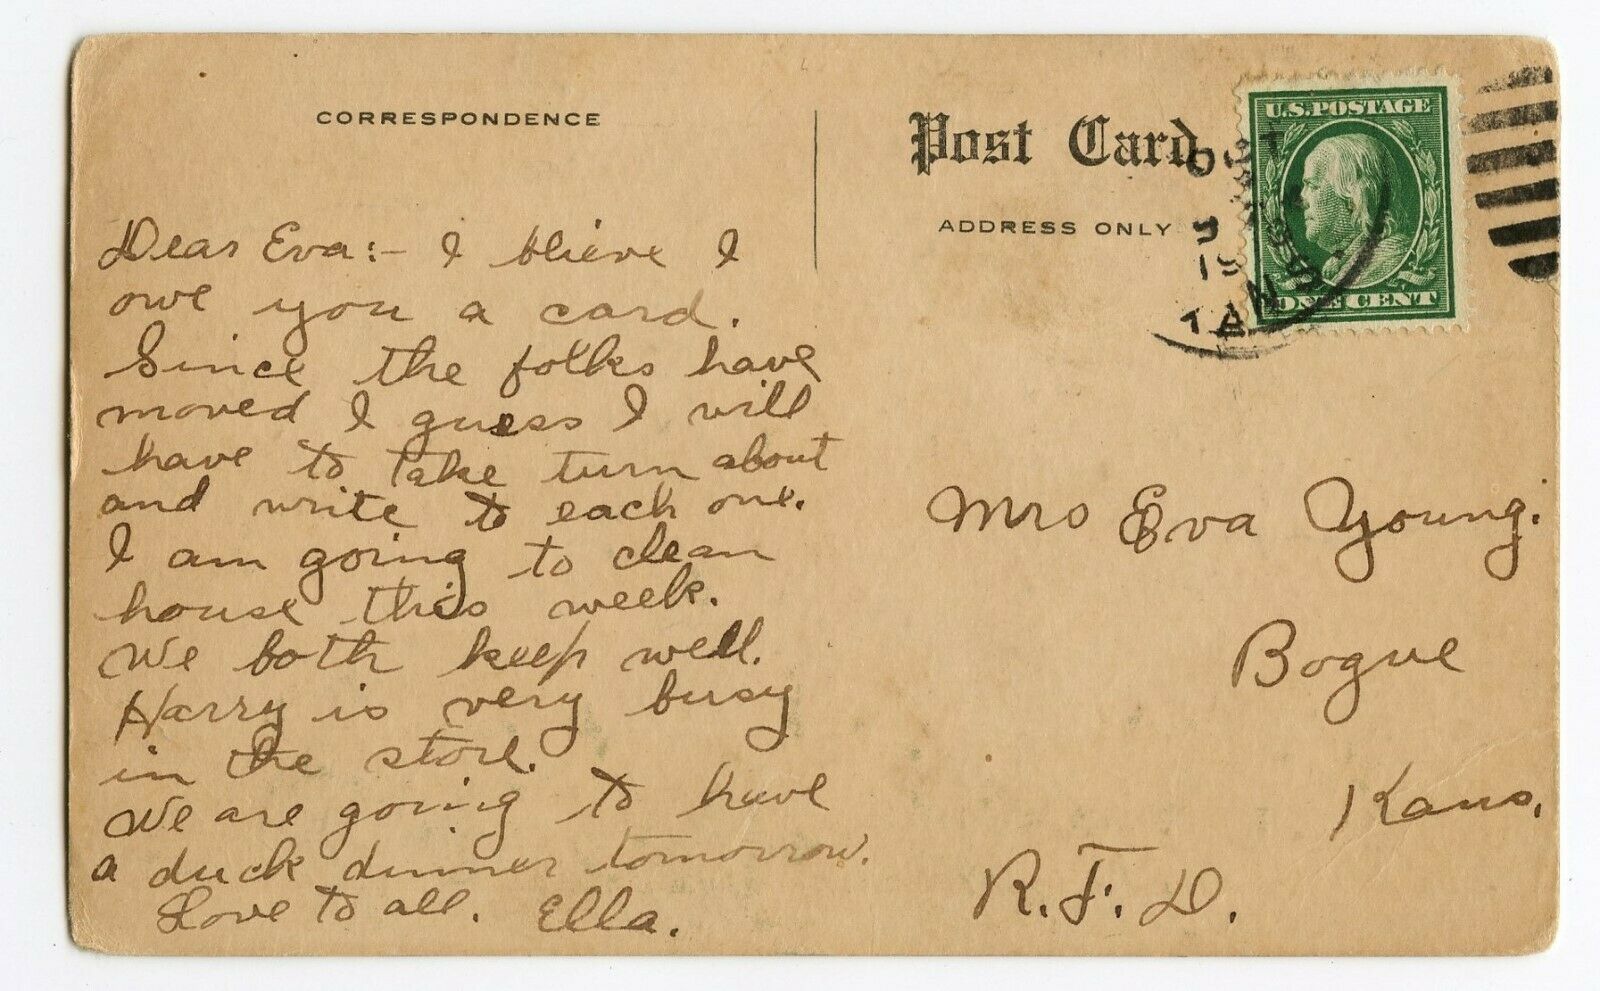 CORRESPONDENCE
Dear Eva:- I blieve I
owe you a card.
Since the folks have
moved I guess I will
have to take turn about
and write to each one.
I am going to clean
house this week.
We both keep well.
Harry is very busy
in the store.
We are going to have
a duck dinner tomorrow.
Love to all. Ella.
Post Card
ADDRESS ONLY
U.S. POSTAGE
ONE CENT
OCT
KANS
Mrs Eva Young.
Bogue
Kans.
R.F.D.